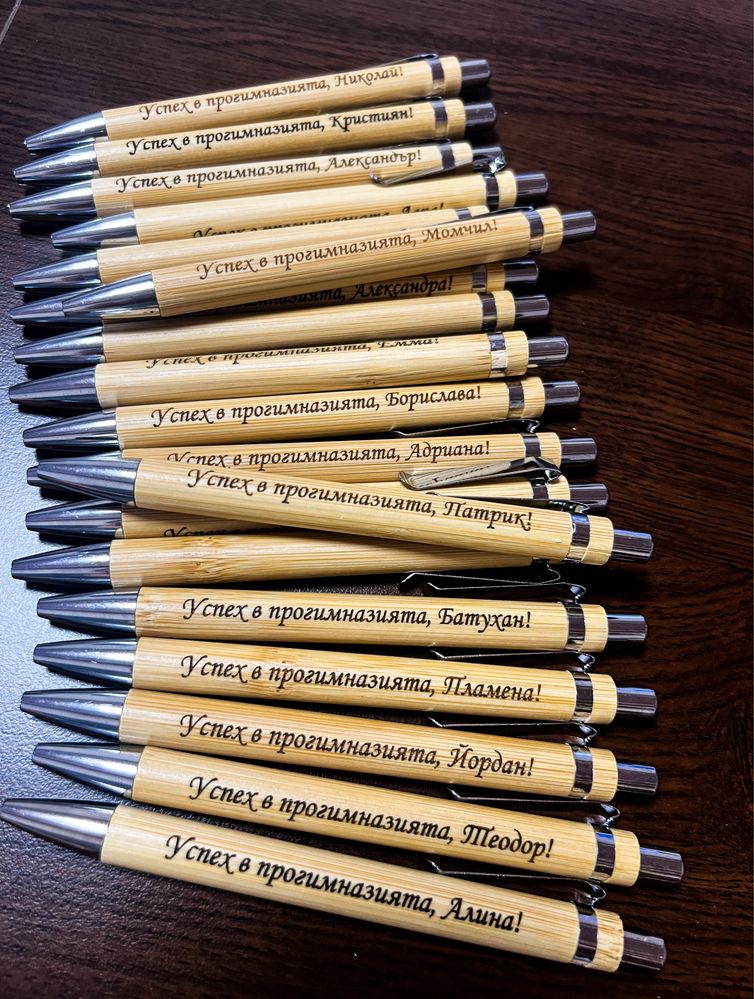 Успех в прогимназията, Николай!
Успех в прогимназията, Кристиян!
Успех в прогимназията, Александър!
Успех в прогимназията,
Успех в прогимназията, Момчил!
прогимназията, Александра!
Успех в прогимназията, Емма!
Успех в прогимназията, Борислава!
Успех в прогимназията, Адриана!
Успех в прогимназията, Патрик!
Успех в
Успех в прогимназията, Батухан!
Успех в прогимназията, Пламена!
Успех в прогимназията, Йордан!
Успех в прогимназията, Теодор!
Успех в прогимназията, Алина!